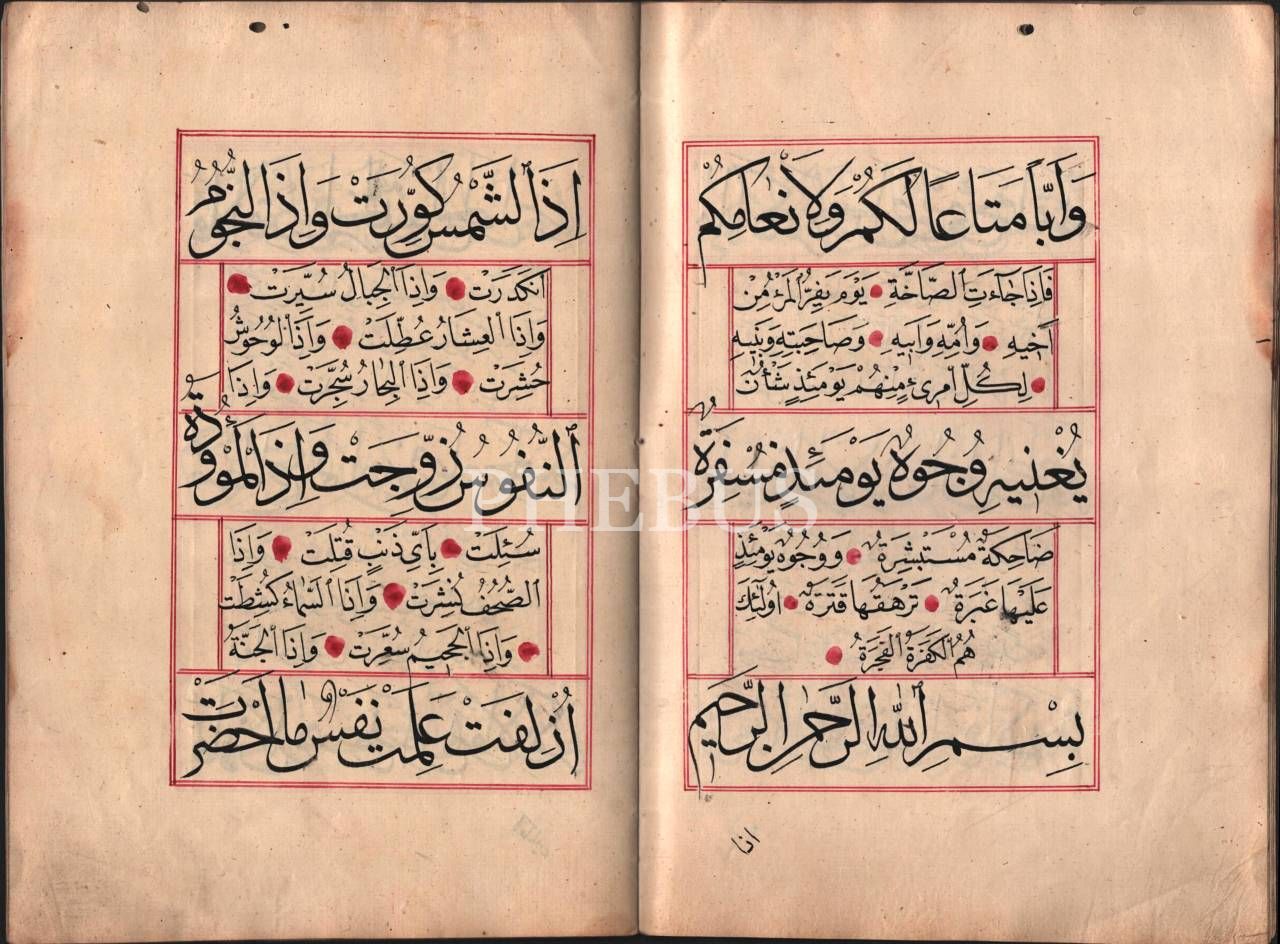 وَاَبّاً مَتَاعًا لَكُمْ وَلِاَنْعَامِكُمْ
فَاِذَا جَآءَتِ الصَّاخَّةُ يَوْمَ يَفِرُّ الْمَرْءُ مِنْ
اَخيهِ وَاُمِّهِ وَاَبيهِ وَصَاحِبَتِهِ وَبَنيهِ
لِكُلِّ امْرِئٍ مِنْهُمْ يَوْمَئِذٍ شَأْنٌ
يُغْنيهِ وُجُوهٌ يَوْمَئِذٍ مُسْفِرَةٌ
ضَاحِكَةٌ مُسْتَبْشِرَةٌ وَوُجُوهٌ يَوْمَئِذٍ
عَلَيْهَا غَبَرَةٌ تَرْهَقُهَا قَتَرَةٌ اُولٰٓئِكَ
هُمُ الْكَفَرَةُ الْفَجَرَةُ
بِسْمِ اللّٰهِ الرَّحْمٰنِ الرَّحيمِ
اذا
اِذَا الشَّمْسُ كُوِّرَتْ وَاِذَا النُّجُومُ
انْكَدَرَتْ وَاِذَا الْجِبَالُ سُيِّرَتْ
وَاِذَا الْعِشَارُ عُطِّلَتْ وَاِذَا الْوُحُوشُ
حُشِرَتْ وَاِذَا الْبِحَارُ سُجِّرَتْ وَاِذَا
النُّفُوسُ زُوِّجَتْ وَاِذَا الْمَوْؤُدَةُ
سُئِلَتْ بِاَيِّ ذَنْبٍ قُتِلَتْ وَاِذَا
الصُّحُفُ نُشِرَتْ وَاِذَا السَّمَاءُ كُشِطَتْ
وَاِذَا الْجَحيمُ سُعِّرَتْ وَاِذَا الْجَنَّةُ
اُزْلِفَتْ عَلِمَتْ نَفْسٌ مَا اَحْضَرَتْ
PHEBUS